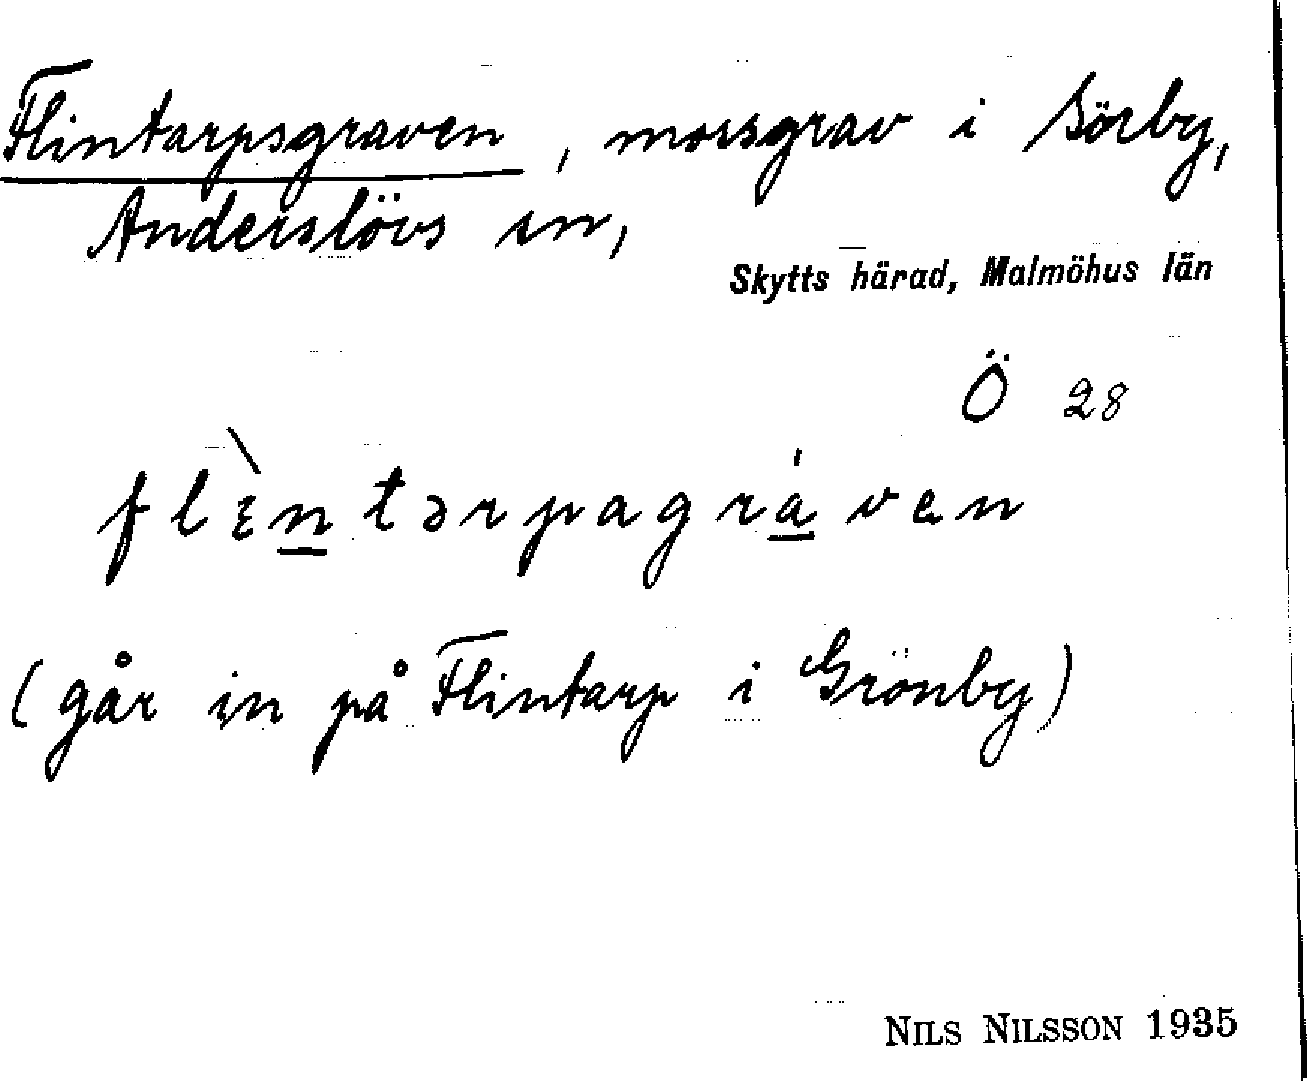 Flintarpsgraven, mossgrav i Sörby,
Anderslövs sn,
Skytts härad, Malmöhus län
Ö 28
flɛ̀ntərpagráven
(går in på Flintarp i Grönby)
NILS NILSSON 1935